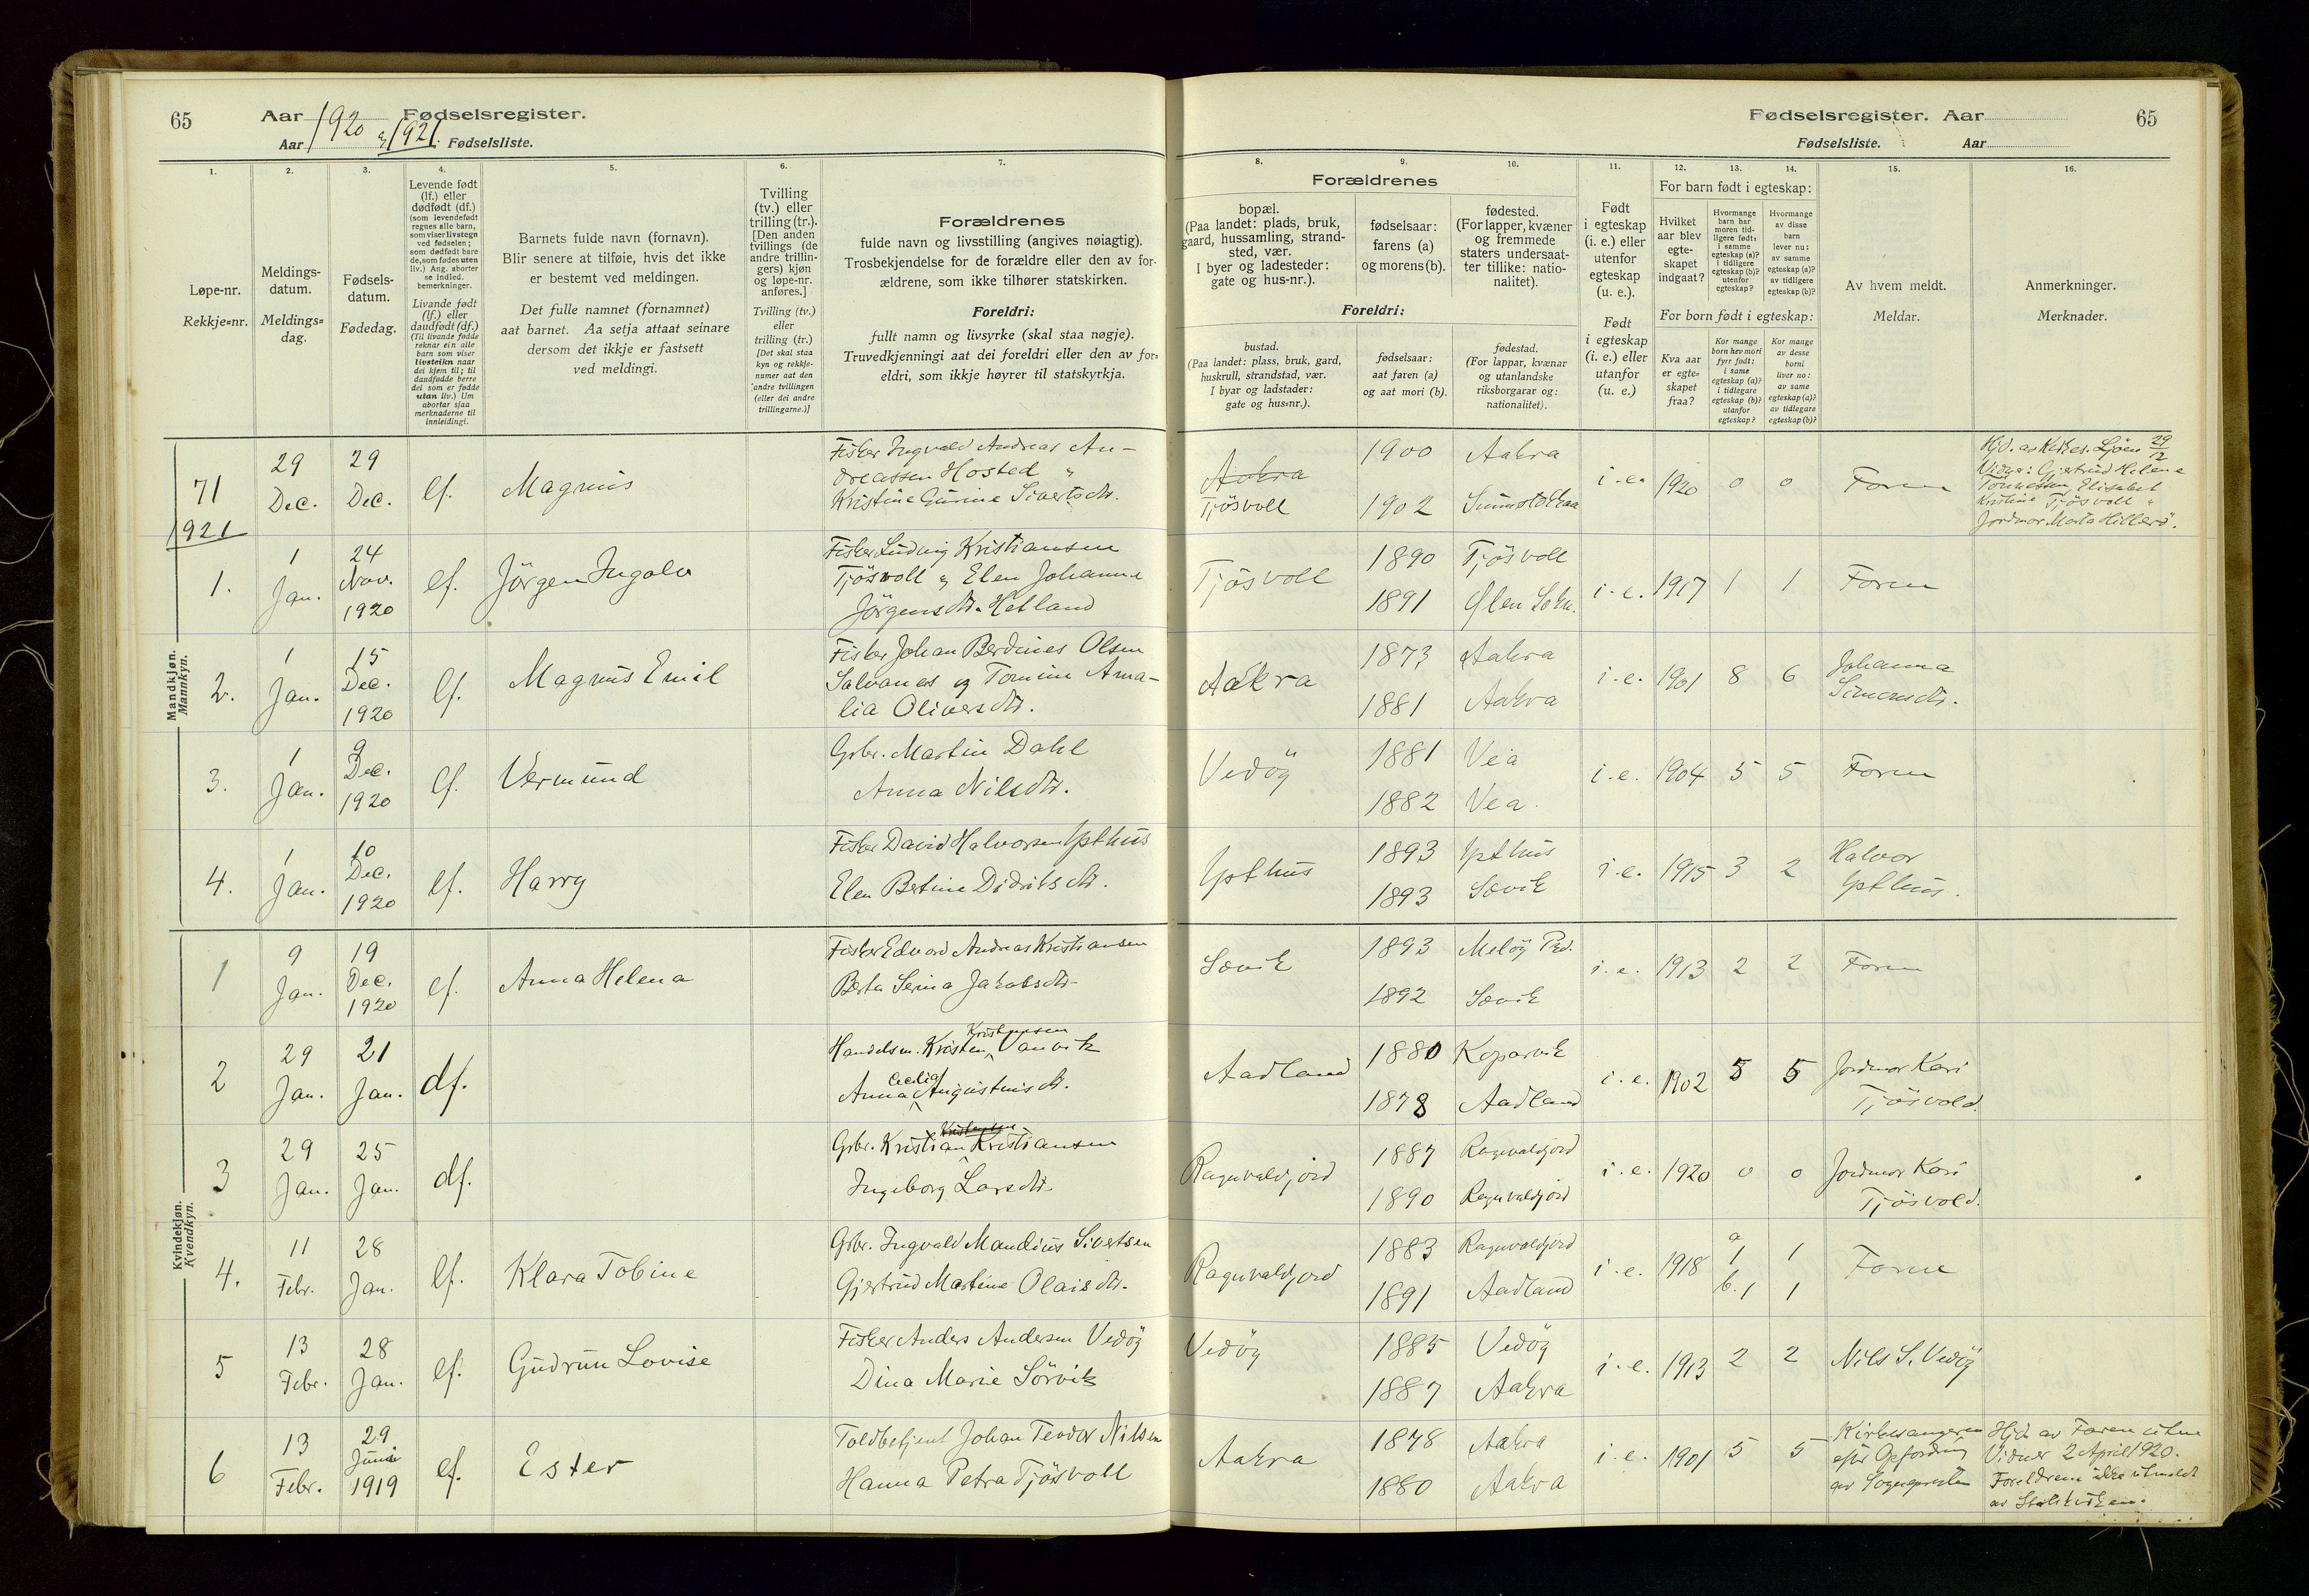 65
Aar 1920 Fødselsregister.
Aar & 1921. Fødselsliste.
Fødselsregister. Aar
Fødselsliste. Aar
65
1.
Løpe-nr.
Rekkje=nr.
2.
Meldings-
datum.
Meldings=
dag.
3.
Fødsels-
datum.
Fødedag.
4.
Levende født
(lf.) eller
dødfødt (df.)
(som levendefødt
regnes alle barn,
som viser livstegn
ved fødselen;
som dødfødt bare
de, som fødes uten
liv.) Ang. aborter
se indled.
bemerkninger.
Livande født
(lf.) eller
daudfødt (df.)
(Til livande fødde
reknar ein alle
barn som viser
livsteikn naar
dei kjem til; til
daudfødde berre
dei som er fødde
utan liv.) Um
abortar sjaa
merknaderne til
innleidingi.
5.
Barnets fulde navn (fornavn).
Blir senere at tilføie, hvis det ikke
er bestemt ved meldingen.
Det fulle namnet (fornamnet)
aat barnet. Aa setja attaat seinare
dersom det ikkje er fastsett
ved meldingi.
6.
Tvilling
(tv.) eller
trilling (tr.).
[Den anden
tvillings (de
andre trillin-
gers) kjøn
og løpe-nr.
anføres.]
Tvilling (tv.)
eller
trilling (tr.)
[Det skal staa
kyn og rekkje-
numer aat den
andre tvillingen
(eller dei andre
trillingarne.)]
7.
Forældrenes
fulde navn og livsstilling (angives nøiagtig).
Trosbekjendelse for de forældre eller den av for-
ældrene, som ikke tilhører statskirken.
Foreldri:
fullt namn og livsyrke (skal staa nøgje).
Truvedkjenningi aat dei foreldri eller den av for=
eldri, som ikkje høyrer til statskyrkja.
Forældrenes
8.
bopæl.
(Paa landet: plads, bruk,
gaard, hussamling, strand-
sted, vær.
I byer og ladesteder:
gate og hus-nr.).
9.
fødselsaar:
farens (a)
og morens (b).
10.
fødested.
(For lapper, kvæner
og fremmede
staters undersaat-
ter tillike: natio-
nalitet).
Foreldri:
bustad.
(Paa landet: plass, bruk, gard,
huskrull, strandstad, vær.
I byar og ladstader:
gate og hus=nr.).
fødselsaar:
aat faren (a)
og aat mori (b).
fødestad.
(For lappar, kvænar
og utanlandske
riksborgarar og:
nationalitet).
11.
Født
i egteskap
(i. e.) eller
utenfor
egteskap
(u. e.).
Født
i egteskap
(i. e.) eller
utanfor
(u. e.)
12. 13. 14.
For barn født i egteskap:
Hvilket
aar blev
egte-
skapet
indgaat?
Hvormange
barn har
moren tid-
ligere født:
i samme
egteskap (a)?
i tidligere
egteskap (b)?
utenfor
egteskap?
Hvormange
av disse
barn
lever nu:
av samme
egteskap (a)?
av tidligere
egteskap (b)?
For born født i egteskap:
Kva aar
er egte=
skapet
fraa?
Kor mange
born hev mori
fyrr født:
i same
egteskap (a)?
i tidlegare
egteskap (b)?
utanfor
egteskap?
Kor mange
av desse
borni
liver no:
av same
egteskap (a)?
av tidlegare
egteskap (b)?
15.
Av hvem meldt.
Meldar.
16.
Anmerkninger.
Merknader.
Mandkjøn.
Mannkyn.
71
29 Dec.
29 Dec.
lf.
Magnus
Fisker Ingvald Andreas An-
dreassen Hosted
Kristine Gurine Sivertsdtr.
Aakra
Tjösvoll
1900 Aakra
1902
i. e. 1920 0 0
Faren
Hjd. av 29/12
Vidner: Gjertrud Helene
Tönnessen, Elisabet
Kristine Tjösvoll
Jordmor Marta Hillerö.
1921
1.
1 Jan.
24 Nov. 1920
lf.
Jörgen Ingolv
Fisker Ludvig Kristiansen
Tjösvoll & Elen Johanne
Jörgensdtr. Hetland
Tjösvoll
1890 Tjösvoll
1891 Ølen Sokn.
i. e. 1917 1 1
Faren
2.
1 Jan.
15 Dec. 1920
lf.
Magnus Emil
Fisker Johan Berdines Olsen
Salvanes og Tomine Ama-
lia Oliversdtr.
Aakra
1873 Aakra
1881 Aakra
i. e. 1901 8 6
Johanna
Simonsdtr.
3.
1 Jan.
9 Dec. 1920
lf.
Vermund
Grbr. Martin Dahl
Anna Nilsdtr.
Vedöy
1881 Vea
1882 Vea.
i. e. 1904 5 5
Faren
4.
1 Jan.
10 Dec. 1920
lf.
Harry
Fisker David Halvorsen Ypthus
Elen Betine Didriksdtr.
Ypthus
1893 Ypthus
1893 Sævik
i. e. 1915 3 2
Halvor
Ypthus.
Kvindekjøn.
Kvendkyn.
1
9 Jan.
19 Dec. 1920
lf.
Anna Helena
Fisker Edvard Andreas Kristiansen
Berta Serina Jakobsdtr.
Sævik
1893 Melöy Pgd.
1892 Sævik
i. e. 1913 2 2
Faren
2
29 Jan.
21 Jan.
df.
Handelsm. Kristen Kristensen Vanvik
Anna Cecilia Augustinisdtr.
Aadland
1880 Kopervik
1878 Aadland
i. e. 1902 5 5
Jordmor Kari
Tjösvold.
3
29 Jan.
25 Jan.
df.
Grbr. Kristian Kristensen Kristiansen
Ingeborg Larsdtr.
Ragnvaldjord
1887 Ragnvaldjord
1890 Ragnvaldjord
i. e. 1920 0 0
Jordmor Kari
Tjösvold.
4.
11 Febr.
28 Jan.
lf.
Klara Tobine
Grbr. Ingvald Mandius Sivertsen
Gjertrud Martine Olaisdtr.
Ragnvaldjord
1883 Ragnvaldjord
1891 Aadland
i. e. 1918 a 1 1
b. 1 1
Farne
5
13 Febr.
28 Jan.
lf.
Gudrun Lovise
Fisker Anders Andersen Vedöy
Dina Marie Sörvik
Vedöy
1885 Vedöy
1887 Aakra
i. e. 1913 2 2
Nils S. Vedöy
6
13 Febr.
29 Juni 1919
lf.
Ester
Toldbetjent Johan Teodor Nilsen
Hanna Petra Tjösvoll
Aakra
1878 Aakra
1880 Aakra
i. e. 1901 5 5
Kirkesangeren
efter Opfordring
av Sognepresten
Hjd. av Faren uten
Vidner 2 April 1920.
Foreldrene ikke utmeldt
av Statskirken.